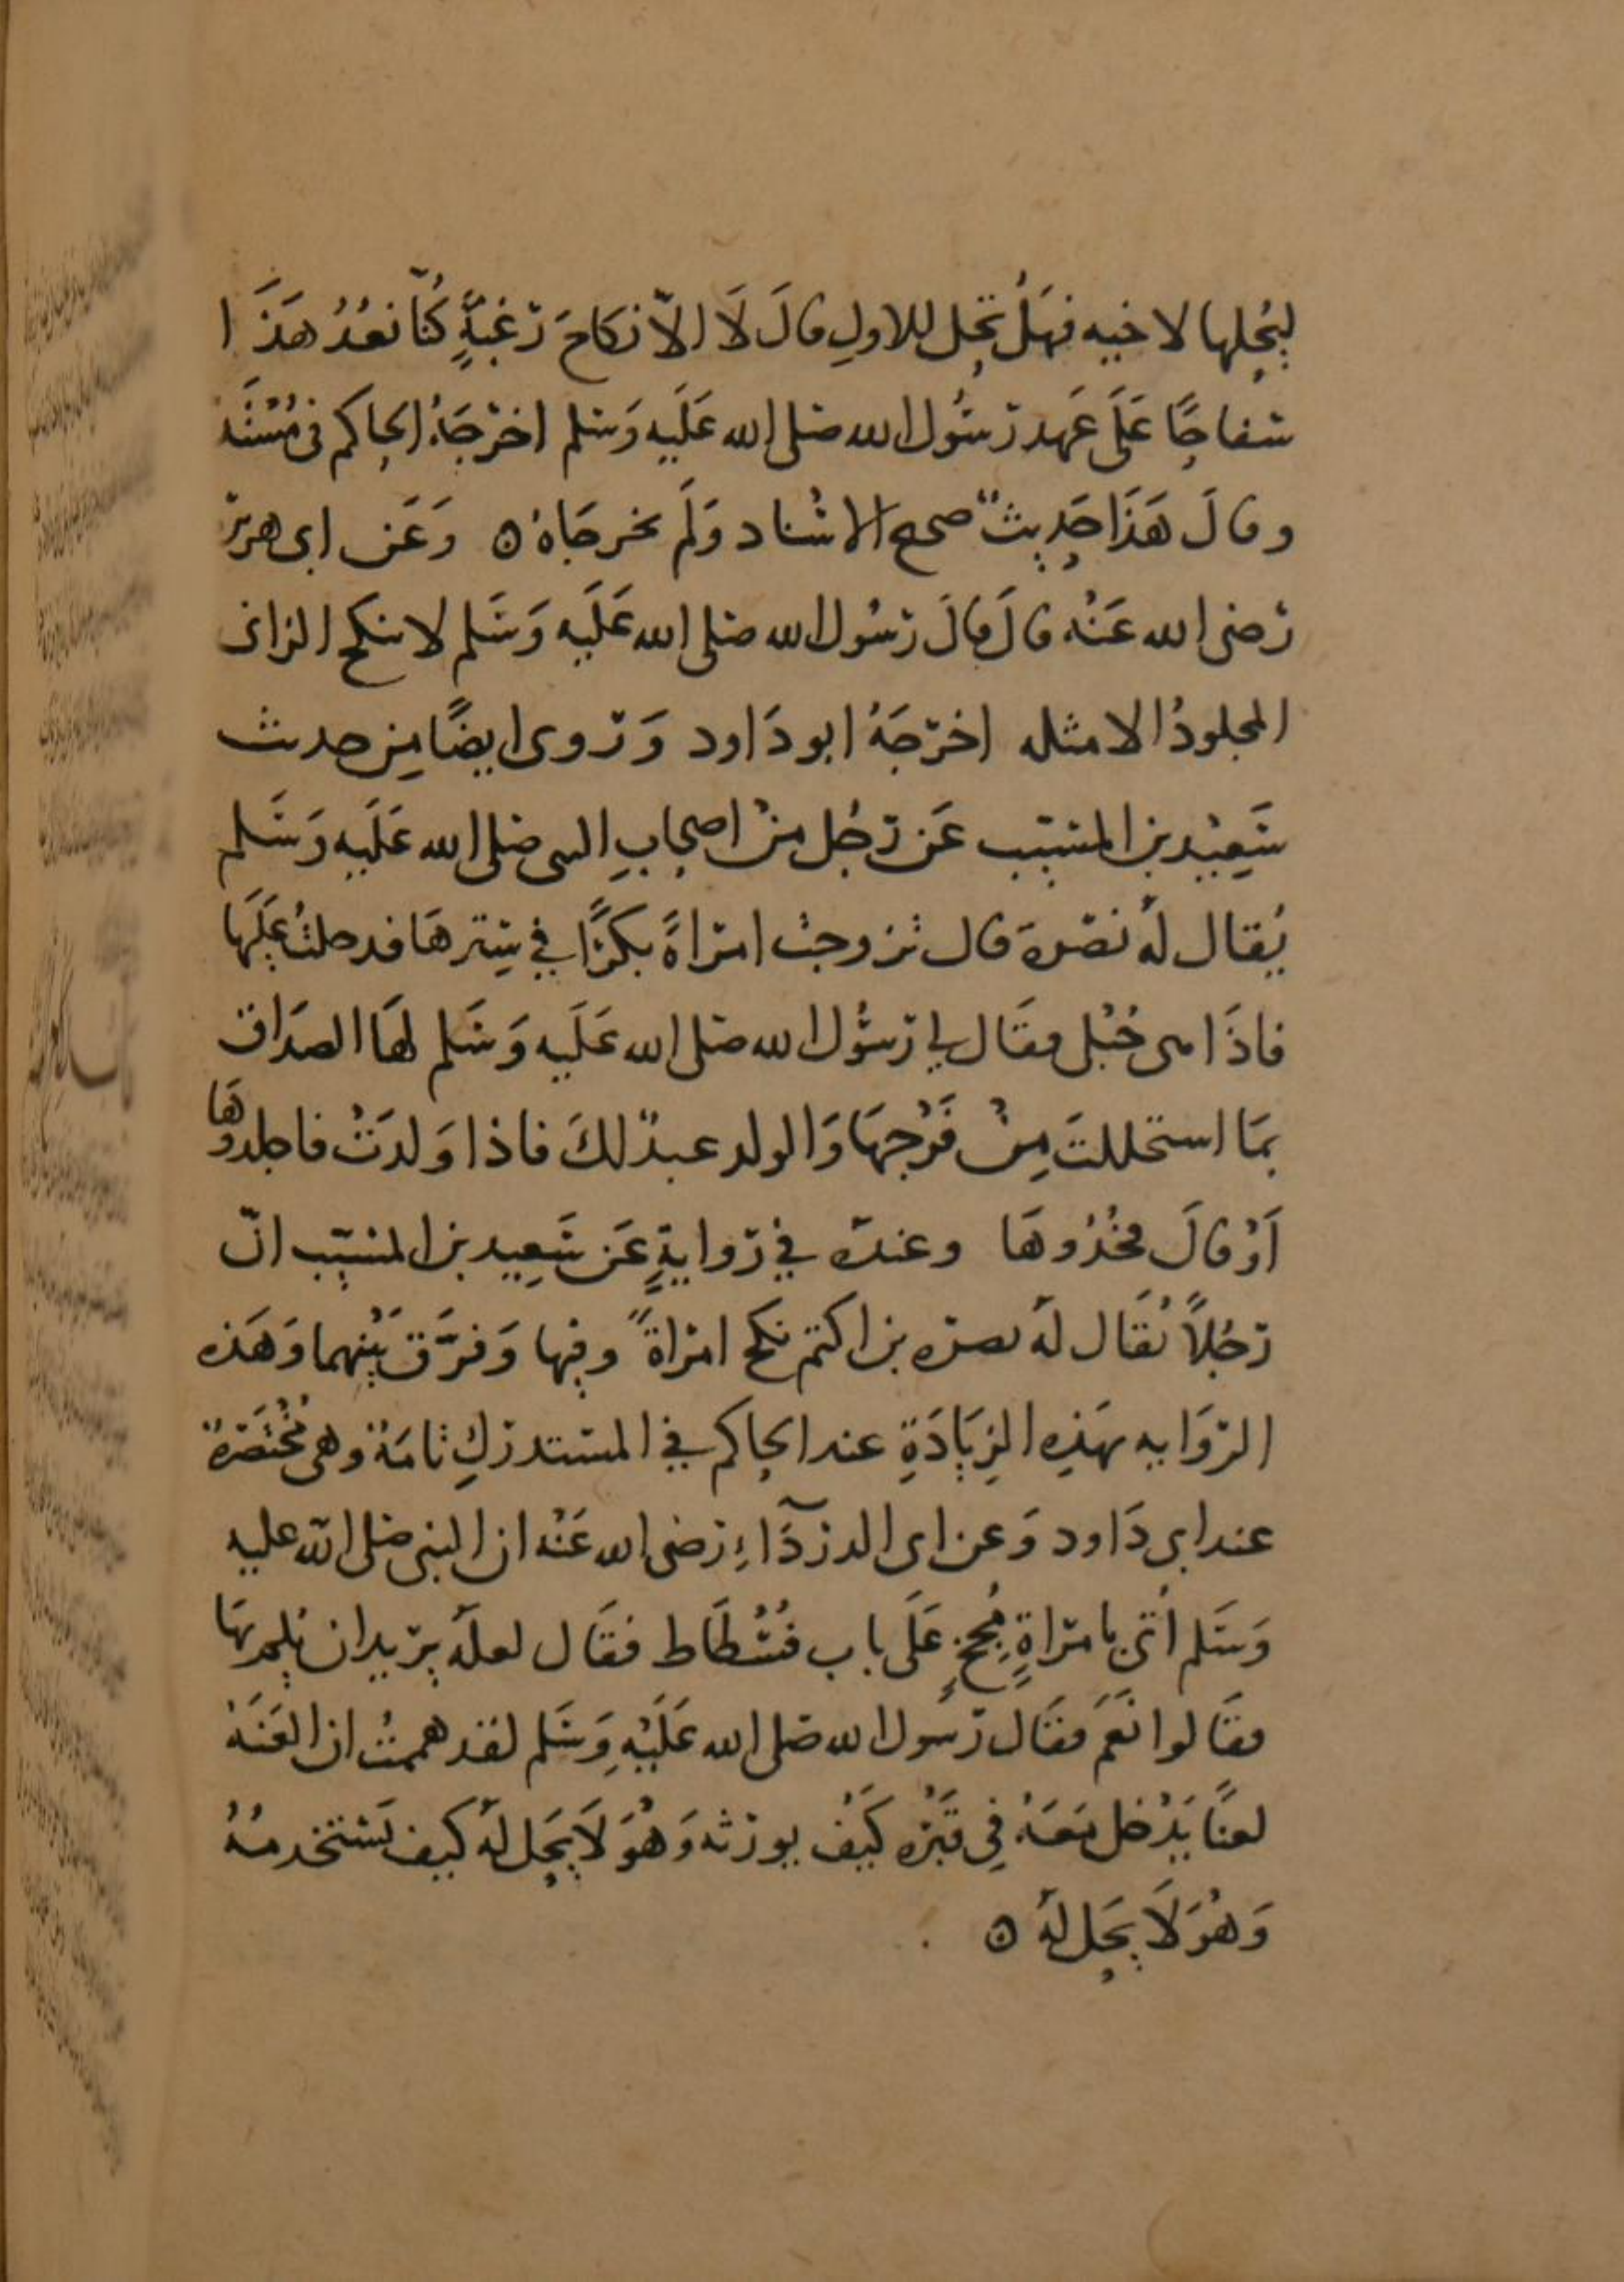 ليُحِلها لاخيه فهَلْ تحِل للاولِ قالَ لَا الاّ نكاحَ رَغبَةٍ كُنّا نعُدُ هَذَا
سفاحًا عَلَى عَهد رَسُول الله صَلى الله عَلَيه وَسَلم اخرَجَهُ الحاكم فى مُسْنَده
وقالَ هَذَا حَدِيثٌ صحيح الاسْناد وَلَم يخرجَاهُ ٥ وَعَن ابى هريرَ
رَضى الله عَنْه قالَ قالَ رَسُول الله صَلى الله عَلَيه وَسَلم لا ينكح الزانى
المجلودُ الا مثله اخرَجَهُ ابو دَاود وَرَوى ايضًا مِن حديث
سَعِيْد بن المسَيّب عَن رَجُل منْ اصحابِ النبى صَلى الله عَلَيه وَسَلم
يُقال لهُ نصَرة قال تزوجتُ امرَاةً بكرًا في سِترهَا فدخلتُ عَلَيهَا
فاذَا هى حُبْلى فقَال لي رَسُول الله صَلى الله عَلَيه وَسَلم لهَا الصدَاق
بمَا استحللتَ مِنْ فَرْجهَا وَالولد عبدٌ لكَ فاذا وَلدَتْ فاجلدوهَا
اَوْ قالَ فحُدُوهَا وعندَه في رَوايةٍ عَن سَعِيد بن المسَيّب انّ
رَجُلاً يُقَال لهُ بصرَه بن اكتم نكح امرَاةً وفيها وَفرَّق بَيْنهما وَهَذه
الروَايه بهَذِه الزِيَادَةِ عند الحاكم في المستدرَكِ تامَةٌ وهى مُخْتَصَرةٌ
عند ابى دَاود وَعن ابى الدردَآءِ رَضى الله عَنْه ان النبى صَلى الله عليه
وَسَلم اُتىَ بامرَاةٍ مُجحٍ عَلَى باب فُسْطَاط فقَال لعلهُ يرَيد ان يُلِم بهَا
فقَالوا نَعَم فقَال رَسُول الله صَلى الله عَلَيْهِ وَسَلم لقد هممتُ ان العَنَهُ
لعنًا يَدْخل مَعَهُ فِي قَبْرِه كَيْفَ يورَثه وَهُوَ لَا يَحِل لهُ كيف يَستخدمُهُ
وَهُوَ لَا يَحِل لهُ ٥